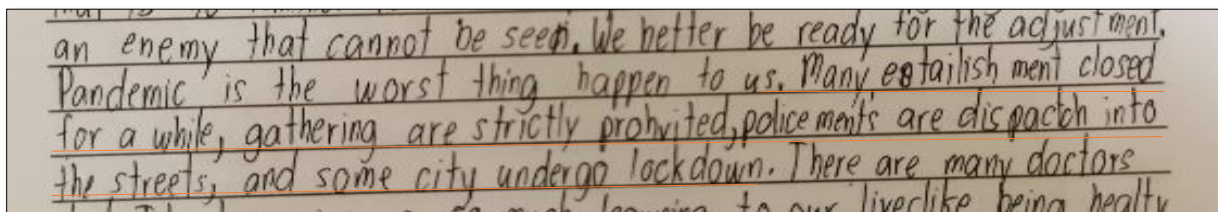 an enemy that cannot be seen. We better be ready for the adjustment.
Pandemic is the worst thing happen to us. Many estailish ment closed
for a while, gathering are strictly prohvited, police ments are dispactch into
the streets, and some city undergo lockdown. There are many doctors
to our liveclike being healty